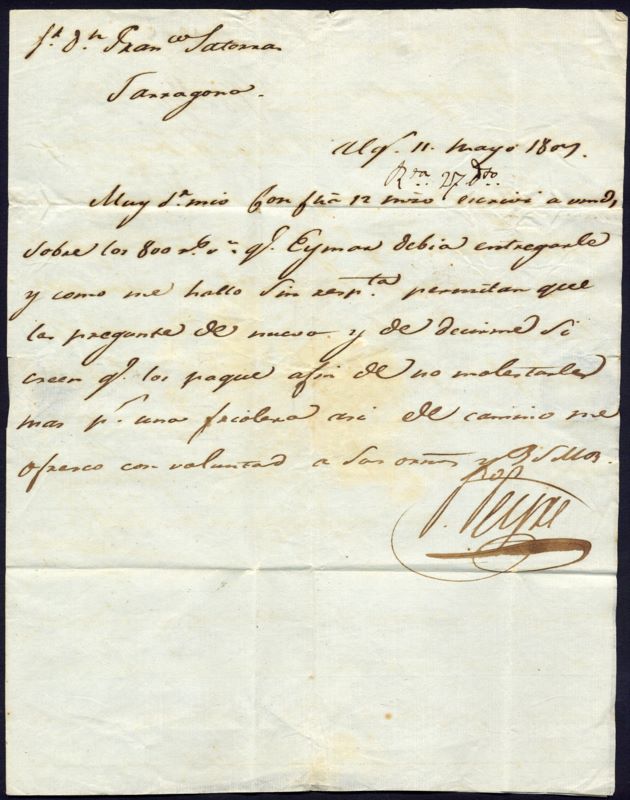 Sr. Dn. Franco. Satorras
Tarragona.
11. Mayo 180
Rta. 27 dto.
Muy Sr. mio Con fha 12 escrivi a vmds
sobre los 800 rs. vn. qe. Eymar debia entregarle
y como me hallo sin respta. permitan que
les pregunte de nuevo y de decirme si
creen qe. los pague afin de no molestarles
mas pr. una friolera asi de camino me
ofresco con voluntad a sus orns y
Peyre